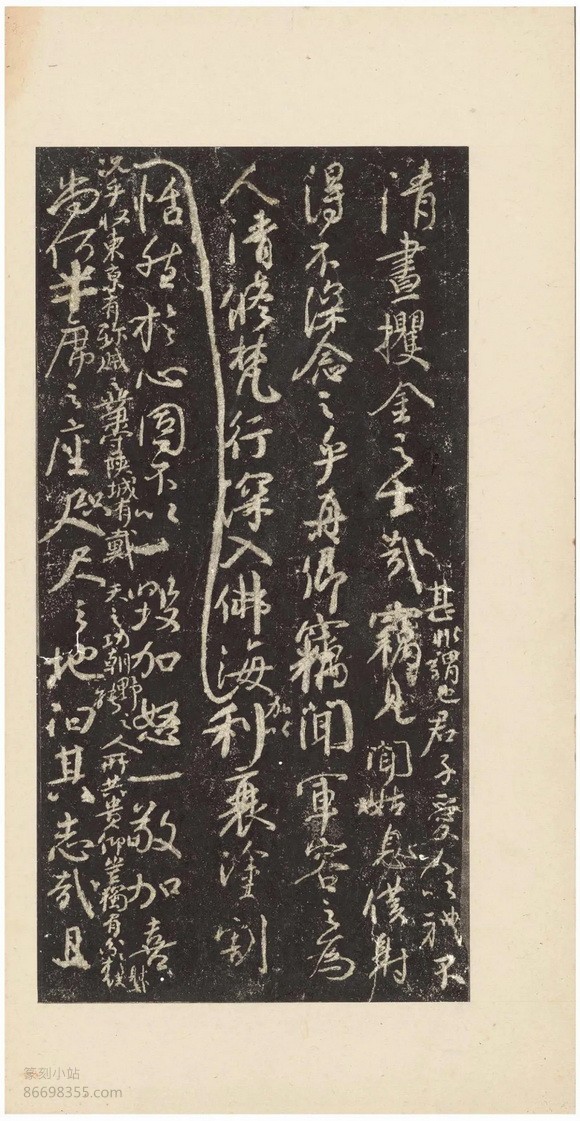 清晝攫金之士哉竊見聞姑息僕射
甚非謂也君子愛人以禮不
得不深念之乎真卿竊聞軍容之為
人清修梵行深入佛海加以利衰塗割
恬然於心固不以一毀加怒一敬加喜
況乎收東京有殄賊之業守陝城有戴天之功朝野之人所共貴仰豈獨有分於僕射哉
尚何半席之座咫尺之地汩其志哉且
篆刻小站
86698355.com